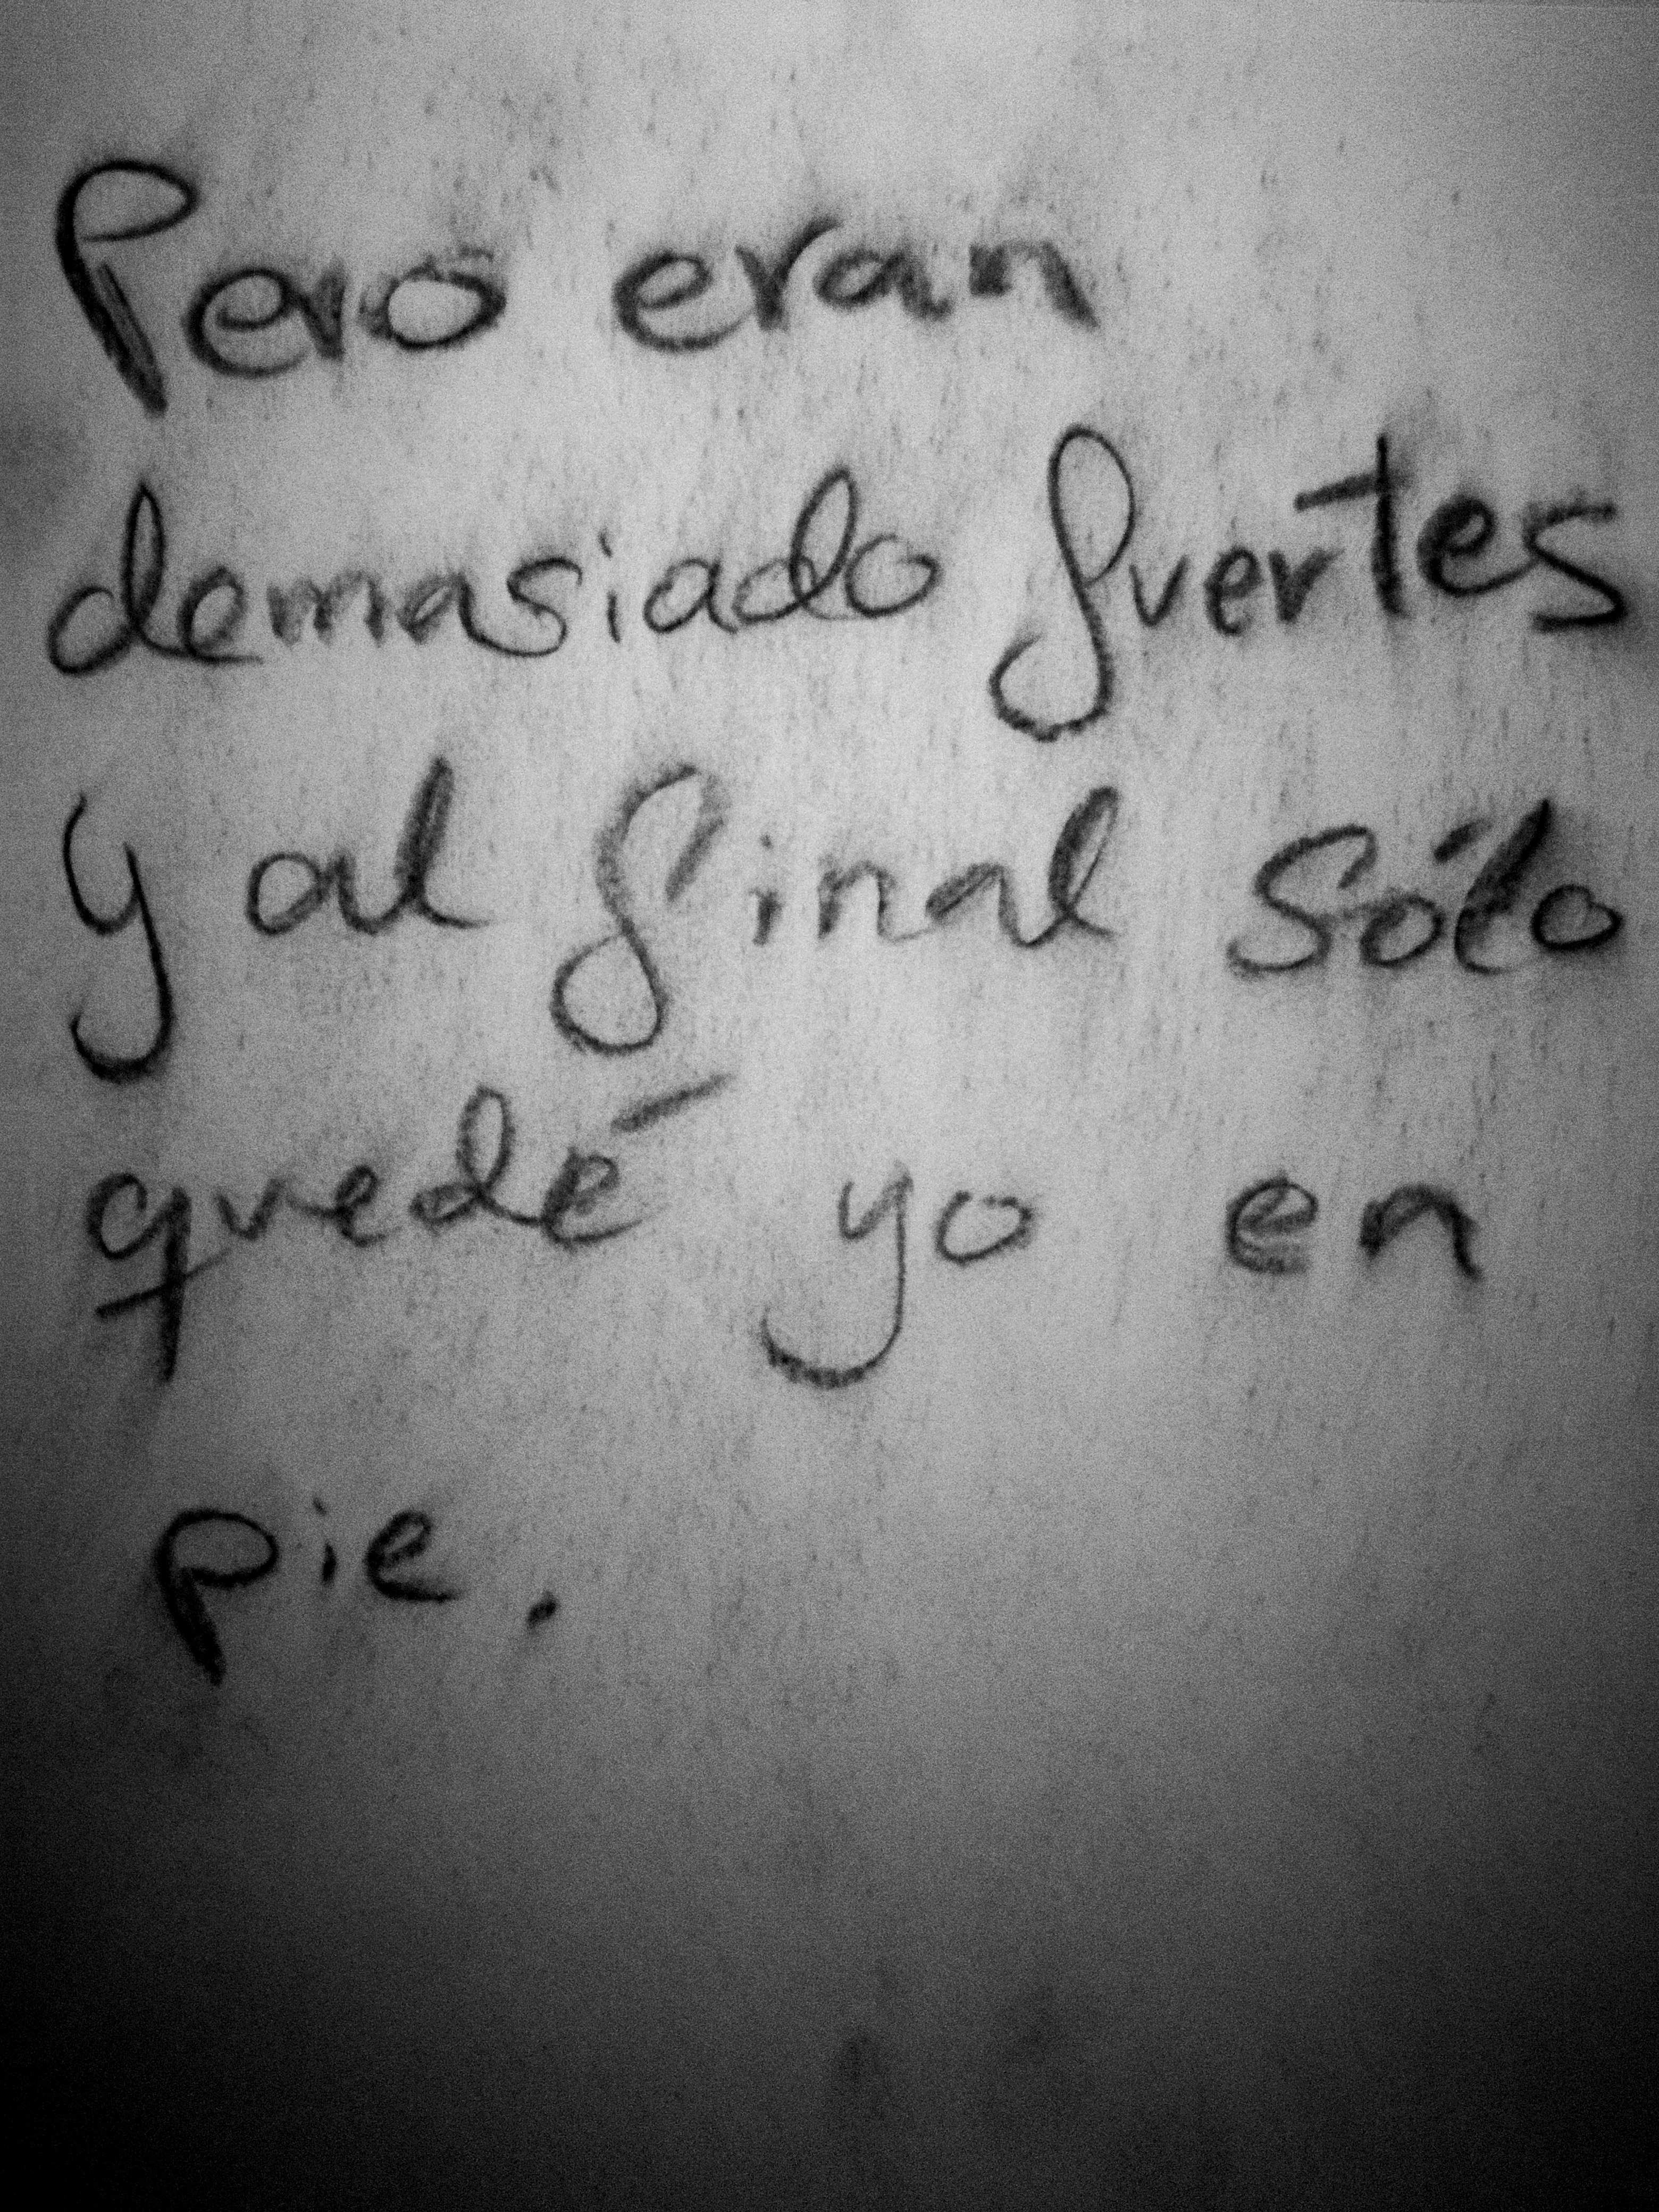 Pero eran
demasiado fuertes
y al final sólo
quedé yo en
pie.